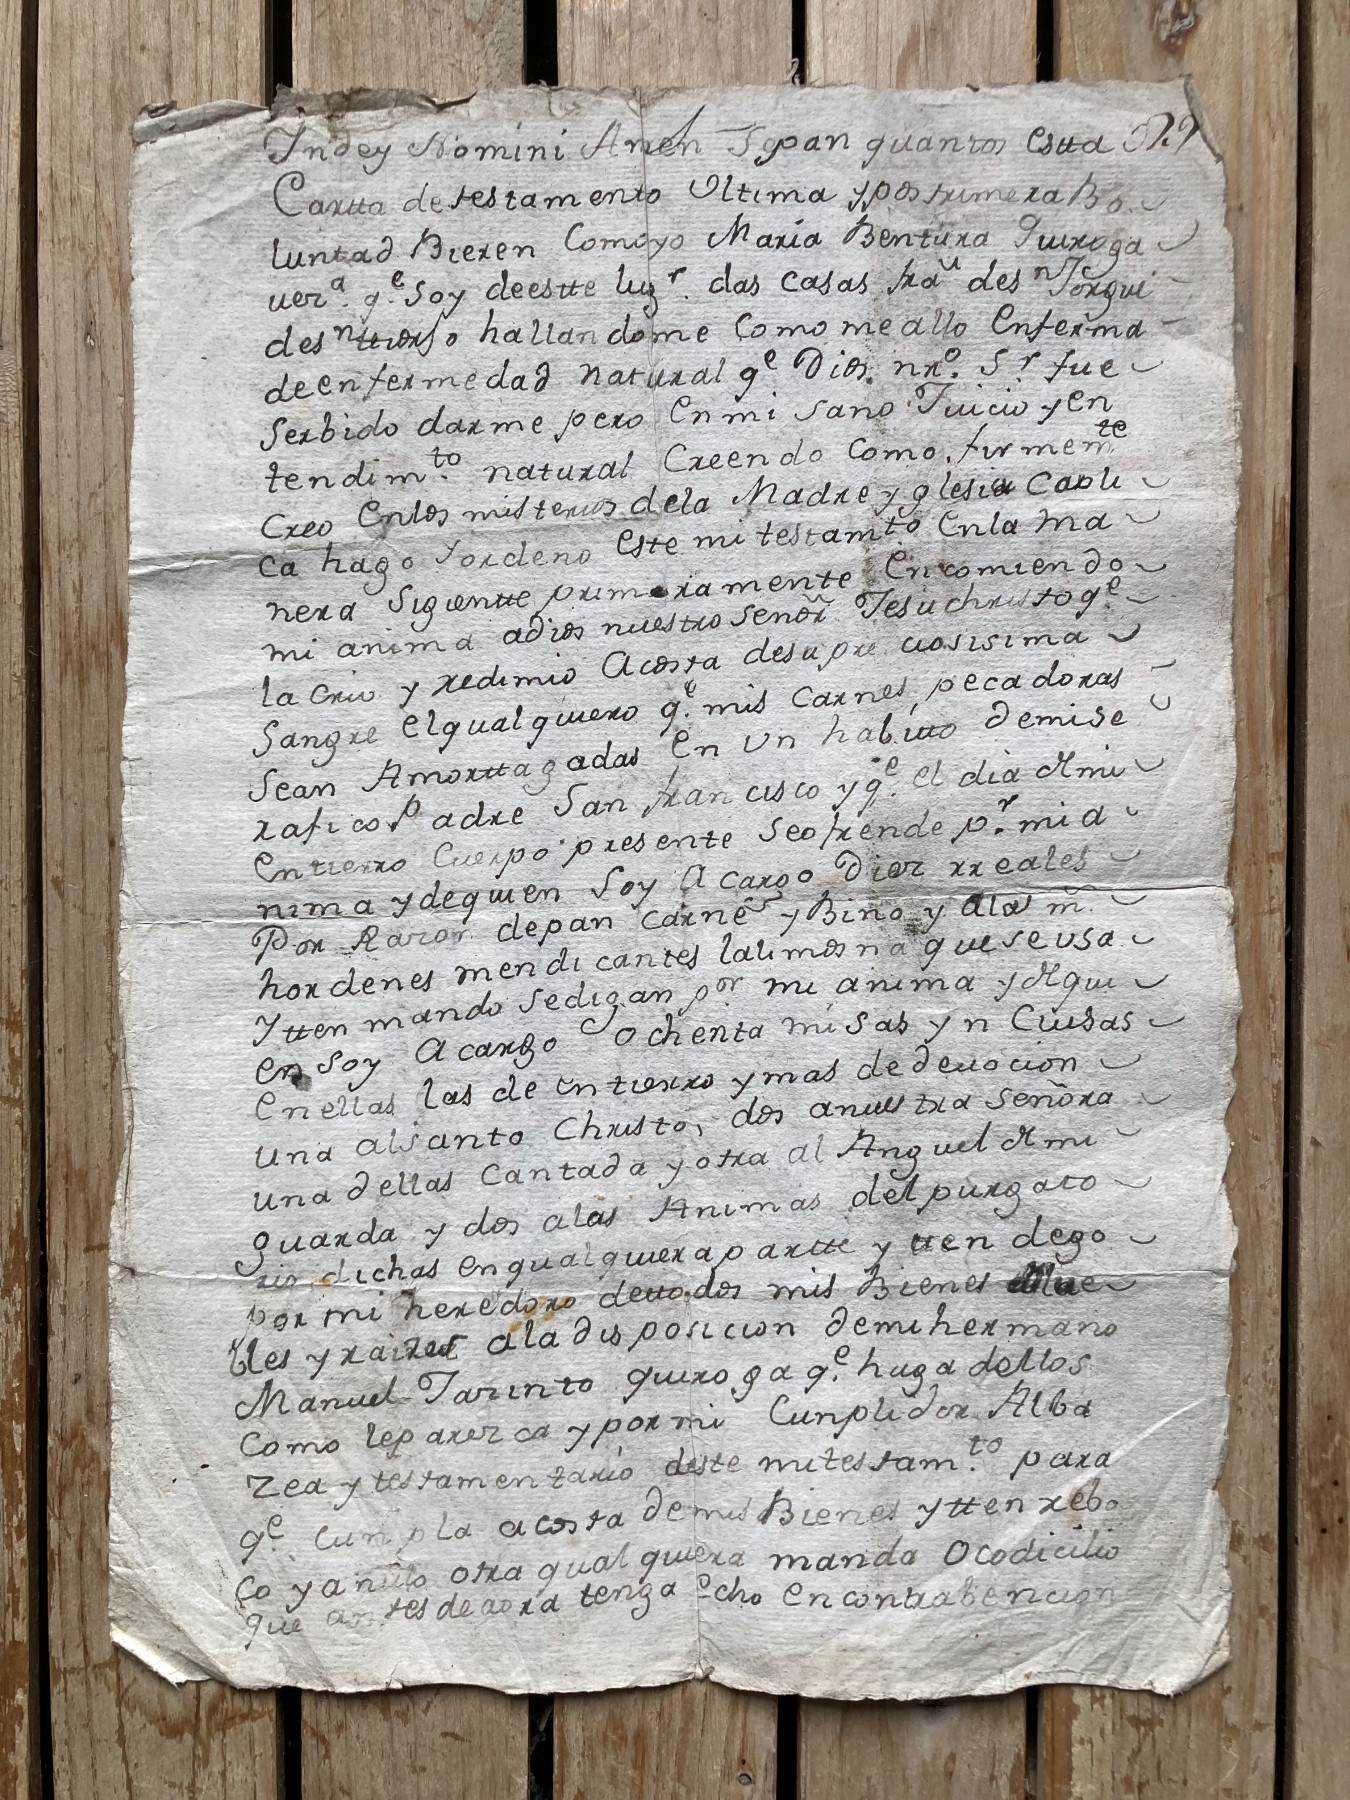 Yndey Nomini Amen Sepan quantos estta
Cartta de testamento Ultima y postrimera Bo
luntad Bieren Como yo Maria Bentura Quiroga
uer.ª q.e soy de estte lug.r das casas fra.u de s.n Jorqui
de s.n hallandome Como me allo Enferma
de enfermedad natural q.e Dios nr.o S.r fue
serbido darme pero En mi sano Juicio y en
tendim.to natural Creendo Como firmem.te
Creo En los misterios de la Madre yglesia Catoli
ca hago Yordeno este mi testamto En la ma
nera Siguientte primeramente Encomiendo
mi anima adios nuestro Señor Jesuchristo q.e
la Crio y redimio Acosta desu pre ciosisima
Sangre El qual quiero q.e mis Carnes pecadoras
sean Amorttagadas En Un habitto demise
rafico Padre San francisco y q.e el dia d mi
Entierro Cuerpo presente se ofrende p.r mi a
nima y dequien soy A cargo Diez rreales
Por Razon depan carnes y Bino y Alas m.
hordenes mendicantes la limosna que se usa
Ytten mando se digan por mi anima y d qui
en soy A cargo Ochenta misas yn Clusas
En ellas las de Entierro y mas de devocion
una al santo Christo, dos anuestra Señora
una dellas Cantada y otra al Anguel d mi
guarda y dos alas Animas del purgato
rio dichas en qualquiera partte y tten dego
por mi heredoro dettodos mis Bienes Mue
bles y raizes ala disposicion demi hermano
Manuel Jazinto quiroga q.e haga dellos
Como le parezca y por mi Cunplidor Alba
zea y testamentario deste mi testam.to para
q.e Cunpla acosta demis Bienes y tten rebo
co y anulo otra qual quiera manda O codicilio
que antes de aora tenga echo En contrabencion